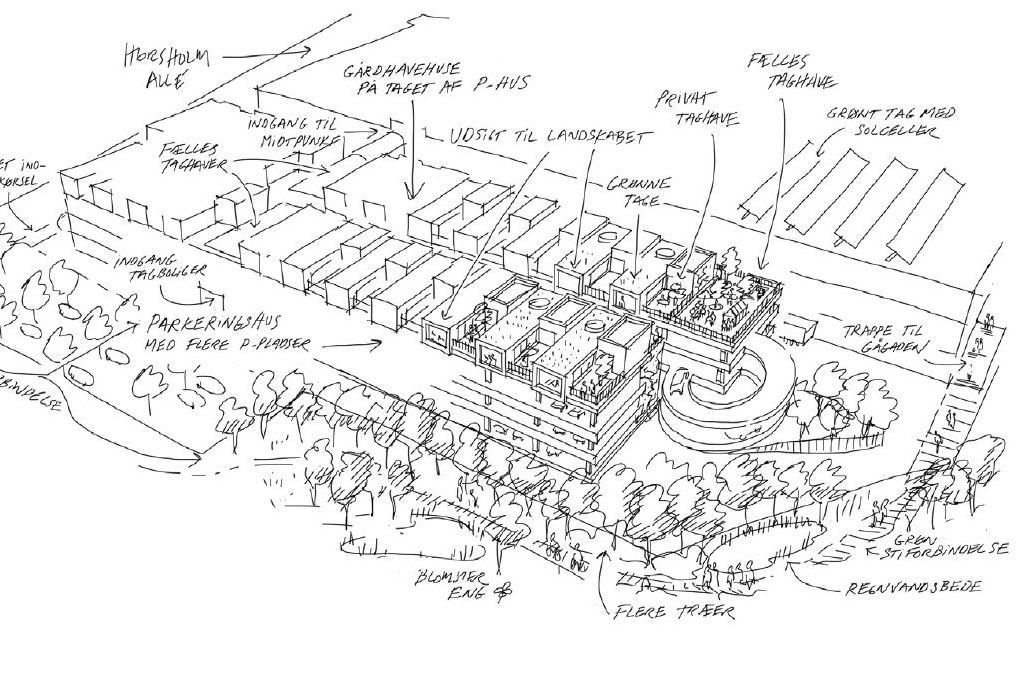 HØRSHOLM
ALLÉ
GÅRDHAVEHUSE
PÅ TAGET AF P-HUS
FÆLLES
TAGHAVE
PRIVAT
TAGHAVE
GRØNT TAG MED
SOLCELLER
INDGANG TIL
MIDTPUNKT
UDSIGT TIL LANDSKABET
FÆLLES
TAGHAVER
ET IND-
KØRSEL
GRØNNE
TAGE
INDGANG
TAGBOLIGER
PARKERINGSHUS
MED FLERE P-PLADSER
TRAPPE TIL
GÅGADEN
BINDELSE
GRØN
STIFORBINDELSE
BLOMSTER
ENG
REGNVANDSBEDE
FLERE TRÆER